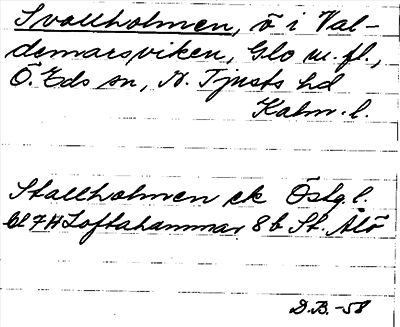 Svallholmen, ö i Val-
demarsviken, Glo m. fl.,
Ö. Eds sn, N. Tjusts hd
Kalm. l.
Stallholmen ek Östg. l.
bl 7H Loftahammar 8b St. Älö
D.B. -58